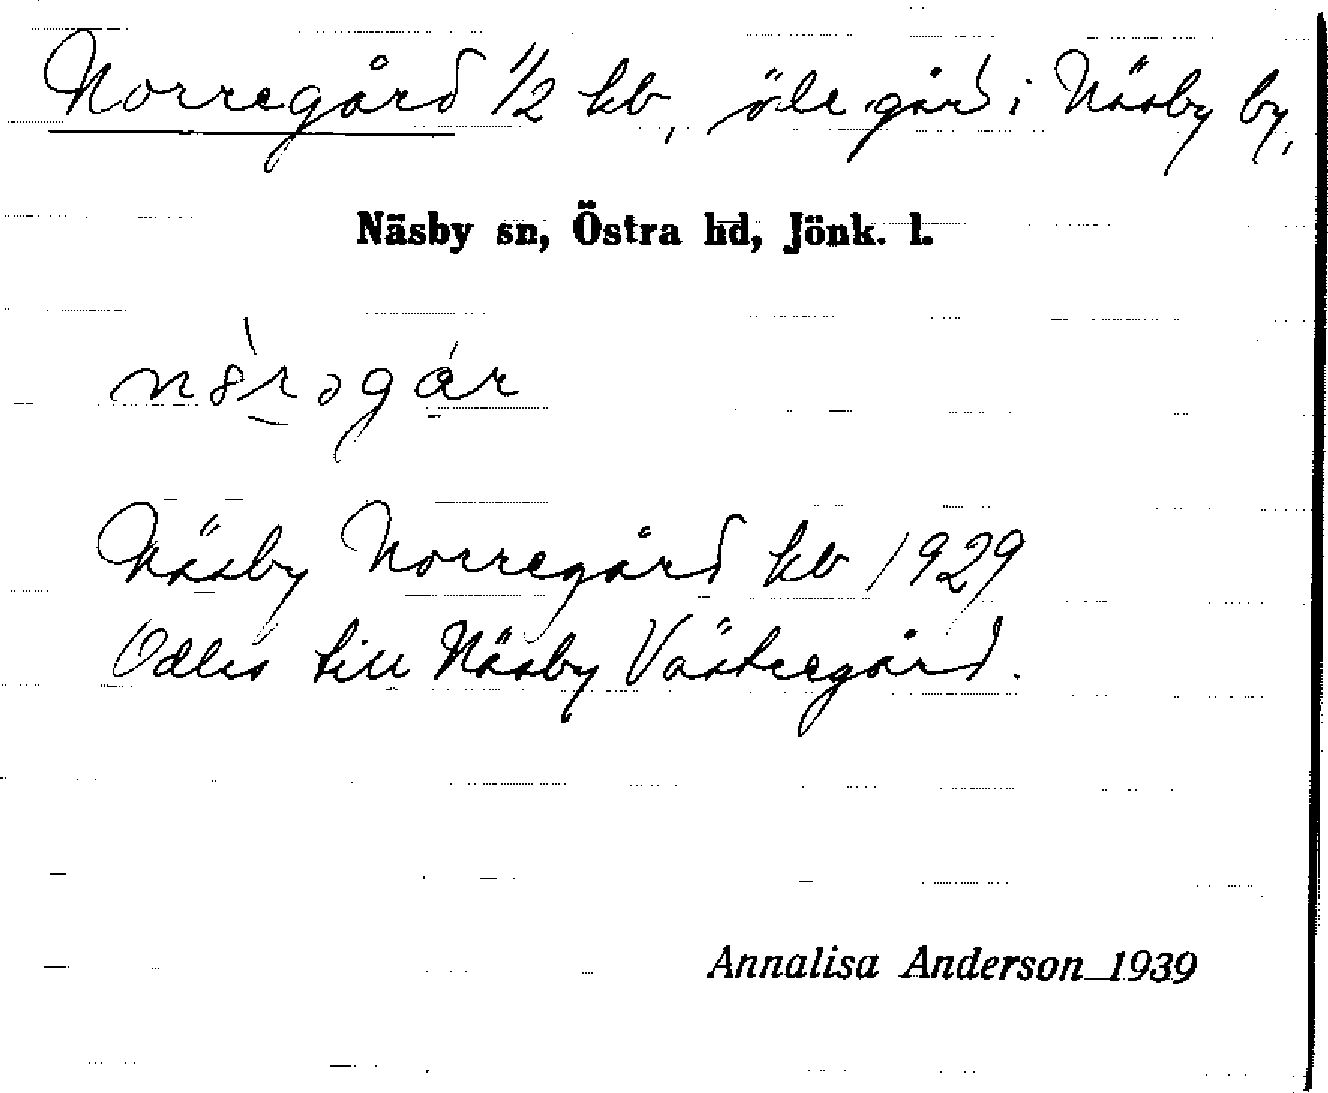 Norregård 1/2 kb, öde gård i Näsby by,
Näsby sn, Östra hd, Jönk. l.
Näsby Norregård kb 1929
Odlas till Näsby Västregård.
Annalisa Anderson 1939